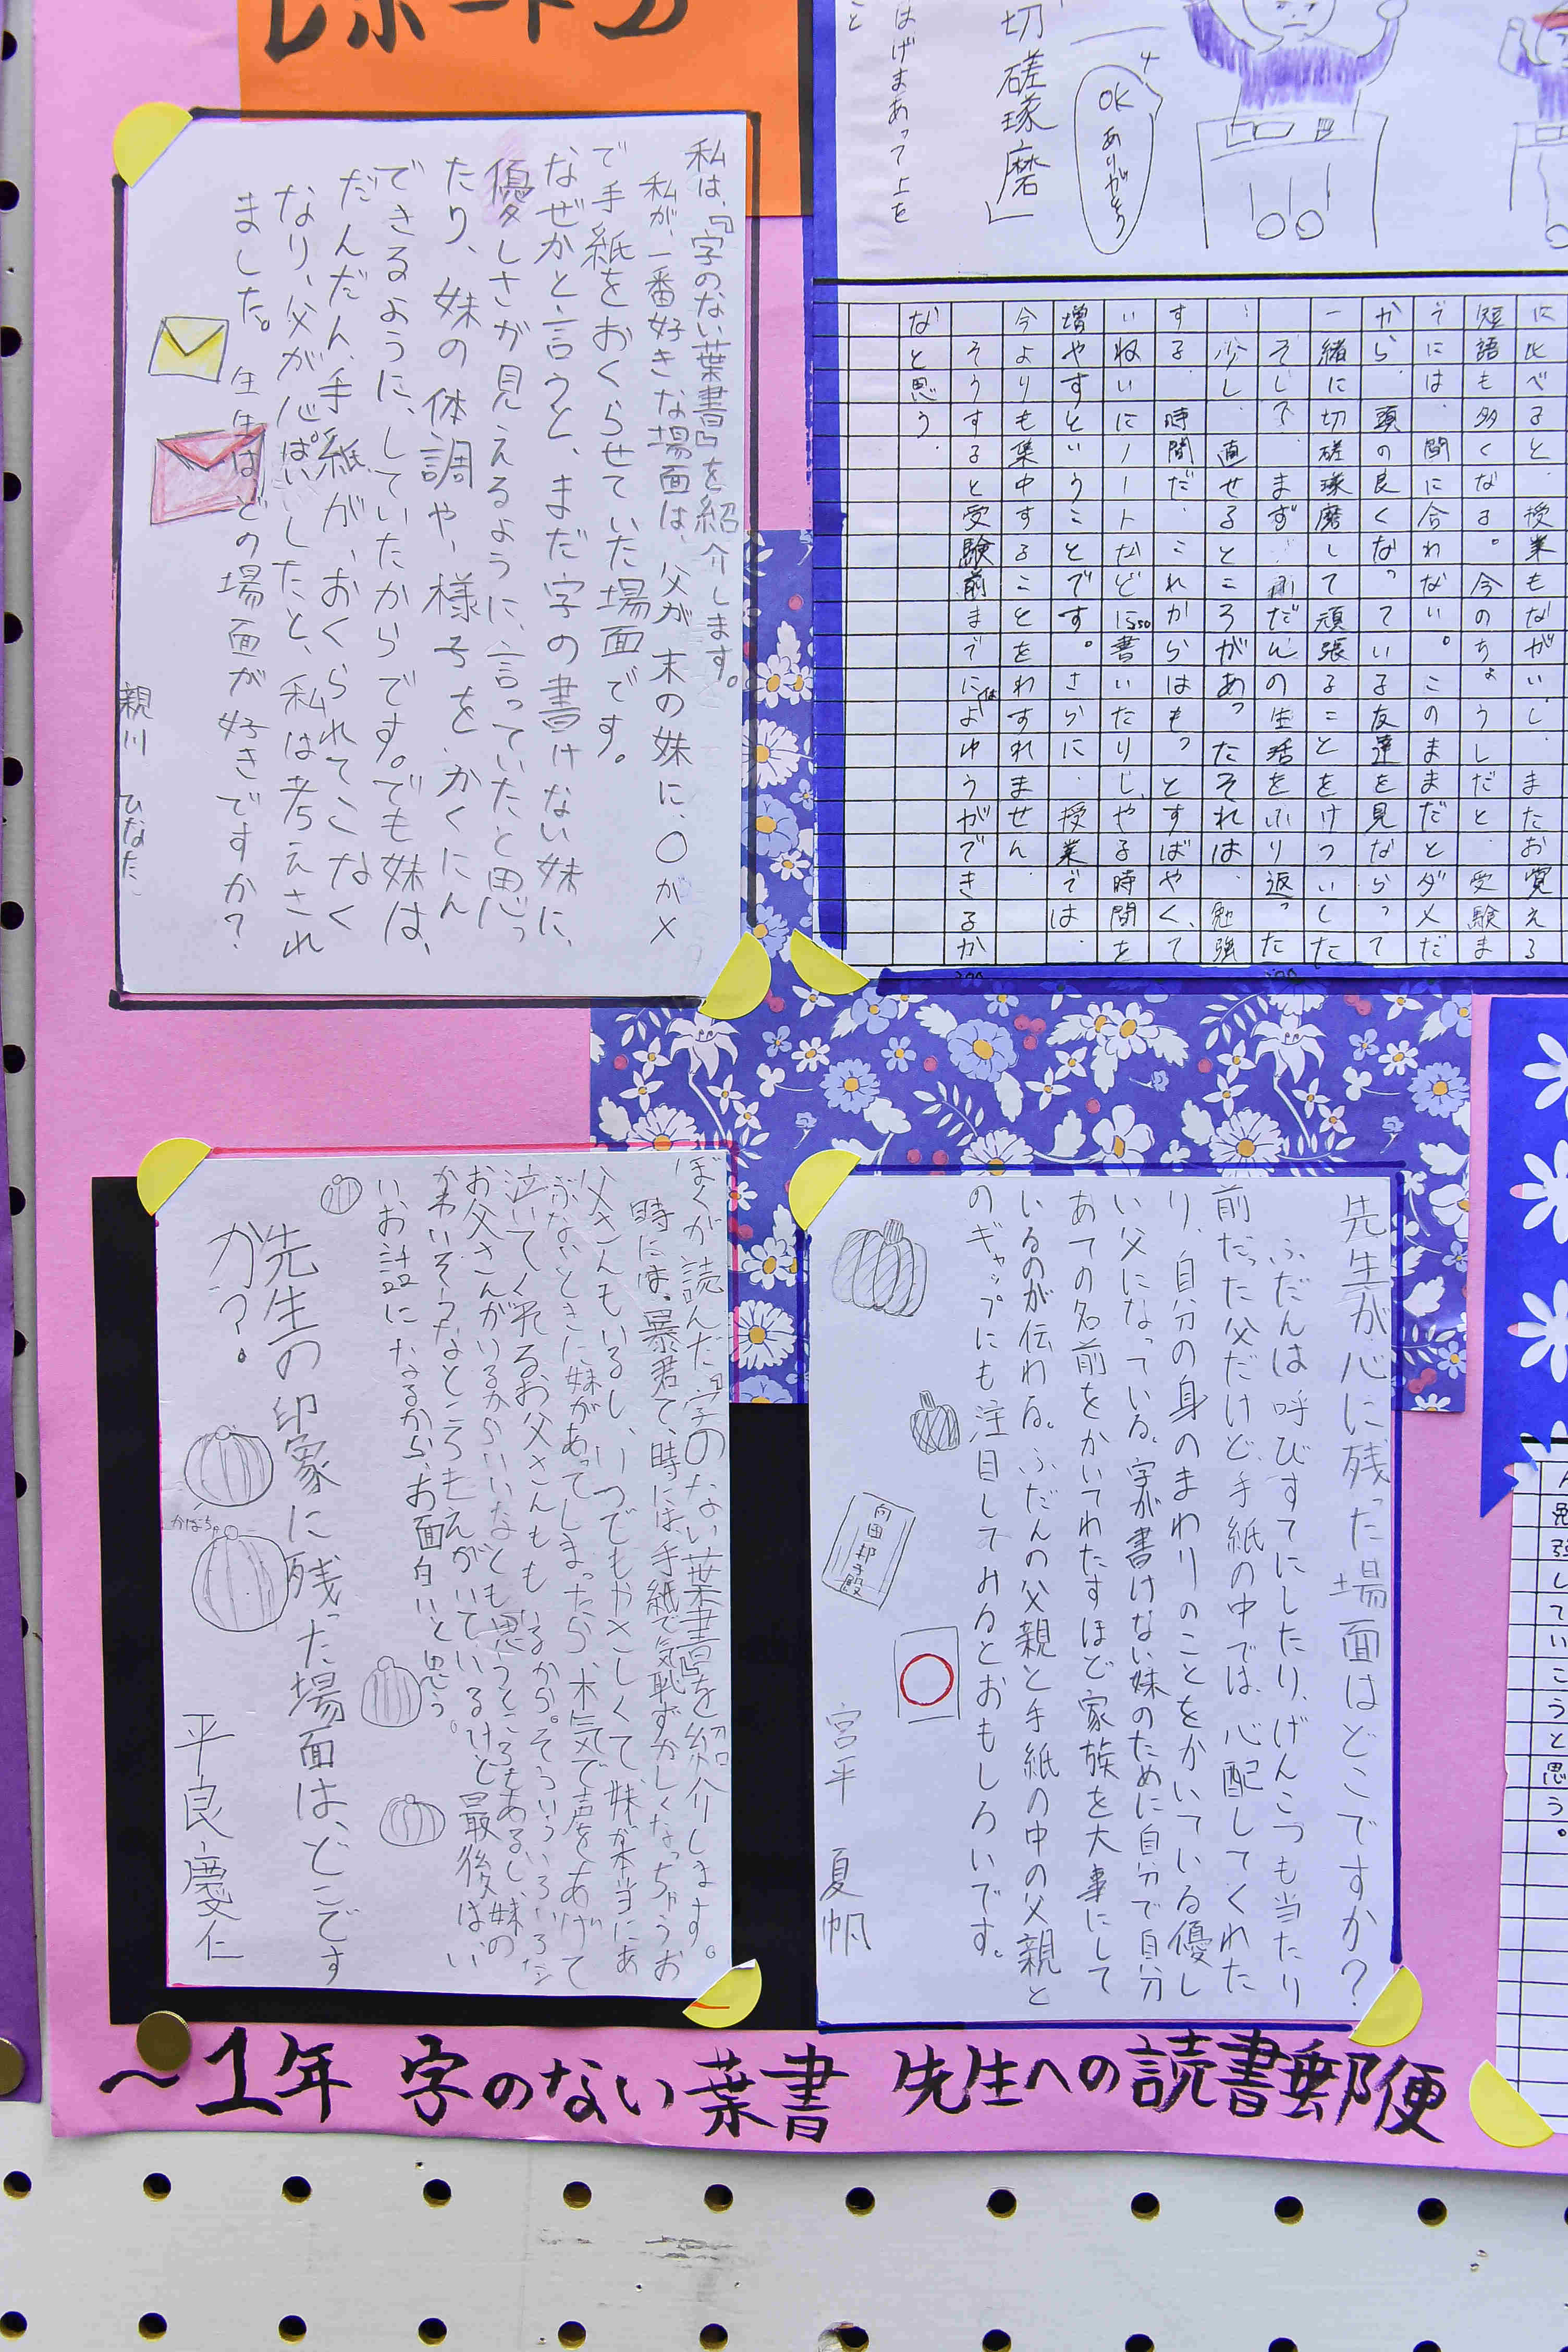 レポート
切磋琢磨」
OK
ありがとう
はげまあって上を
こと
に比べると、授業もながいし、またお覚える
短語も多くなる。今のちょうしだと、受験ま
でには、間に合わない。このままだとダメだ
から、頭の良くなっている友達を見ならって
一緒に切磋琢磨して頑張ることをけついした
少し、直せるところがあったそれは、勉強
する時間だ、これからはもっとすばやく、て
いねいにノートなど書いたりし、やる時間を
増やすということです。さらに、授業では、
今よりも集中することをわすれません
そうすると受験前までにはよゆうができるか
なと思う。
私は、『字のない葉書』を紹介します。
私が、一番好きな場面は、父が末の妹に、〇が×
で手紙をおくらせていた場面です。
なぜかと言うと、まだ字の書けない妹に、
優しさが見えるように、言っていたと思っ
たり、妹の体調や、様子を、かくにん
できるように、していたからです。でも妹は、
だんだん、手紙が、おくられてこなく
なり、父がしんぱいしたと、私は考えされ
ました。先生はどの場面が好きですか？
親川 ひなた
先生が心に残った場面はどこですか？
ふだんは呼びすてにしたり、げんこつも当たり
前だった父だけど、手紙の中では、心配してくれた
り、自分の身のまわりのことをかいている優し
い父になっている。字が書けない妹のために自分で自分
あての名前をかいてわたすほど家族を大事にして
いるのが伝わる。ふだんの父親と手紙の中の父親と
のギャップにも注目してみるとおもしろいです。
向田邦子殿
宮平 夏帆
ぼくが読んだ『字のない葉書』を紹介します。
時には、暴君で、時には、手紙で気恥ずかしくなっちゃうお
父さんもいるし、いつでもやさしくて、妹が本当にあ
ぶないときに妹があってしまったら、本気で声をあげて
泣いてくれるお父さんももいるから。そういういろいろな
お父さんがいるからいいなとも思うところもあるし、妹の
かわいそうなところもえがいているけど最後はいい
いお話になるから、お面白いと思う。
先生の印象に残った場面は、どこです
か？。
かぼちゃ
平良 慶仁
勉強していこうと思う。
〜1年 字のない葉書 先生への読書郵便